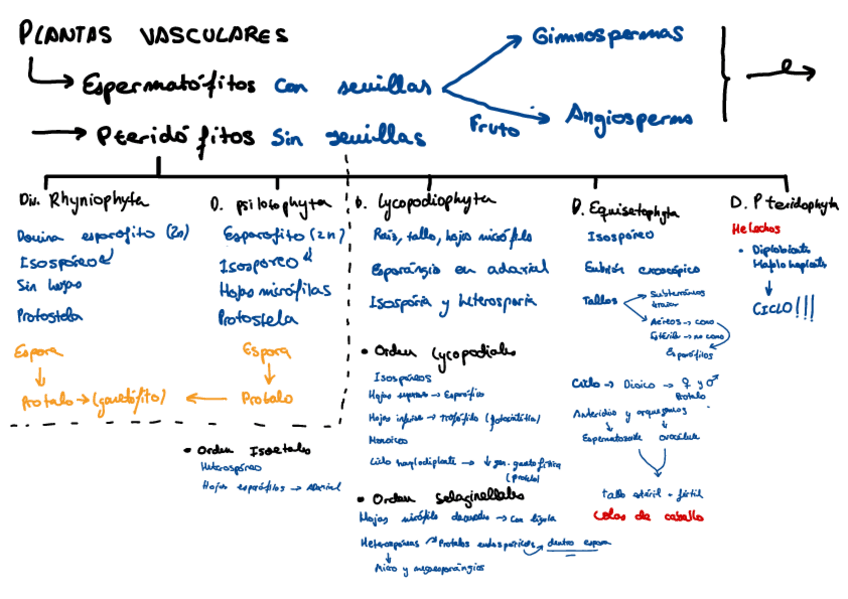 PLANTAS VASCULARES
Espermatófitos con semillas
Gimnospermas
Fruto
Angiosperma
Pteridófitos sin semillas
Div. Rhyniophyta
Domina esporofito (2n)
Isospóreo
Sin hojas
Protostela
Espora
Protalo → (gametófito)
D. psilotophyta
Esporofito (2n)
Isospóreo
Hojas micrófilas
Protostela
Espora
Protalo
D. Lycopodiophyta
Raíz, tallo, hojas micrófila
Esporangio en adaxial
Isosporia y heterosporia
• Orden Lycopodiales
Isospóreos
Hojas superas → Esporófilo
Hojas inferas → Trofófilo (fotosintética)
Monoico
Ciclo haplodiplonte → ↓ gen. gametofítica
(protalo)
• Orden Isoetales
Heterospóreo
Hojas esporófilos → Adaxial
• Orden Selaginellales
Hojas micrófila → Con lígula
Heterospóreas → Protalos endospóricos → dentro espora
Micro y megasporangios
D. Equisetophyta
Isospóreo
Embrión exoscópico
Tallos
Subterráneos
Aéreos → cono
Estéril → no cono
Esporófilos
Ciclo → Dioico → ♀ y ♂
Protalo
Anteridio y arquegonios
Espermatozoide ovocélula
Tallo estéril + fértil
Colas de caballo
D. Pteridophyta
Helechos
• Diplobionte
Haplodiplonte
CICLO!!!